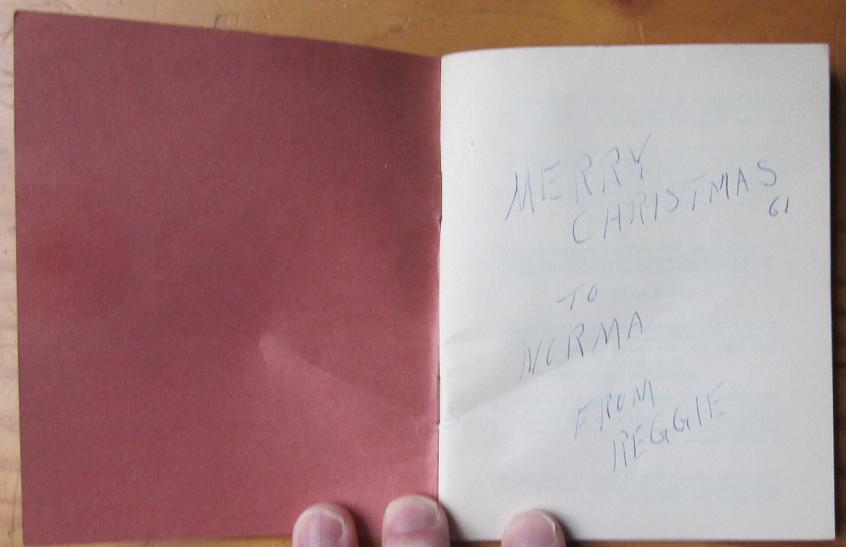 MERRY
CHRISTMAS
61
TO
NORMA
FROM
REGGIE